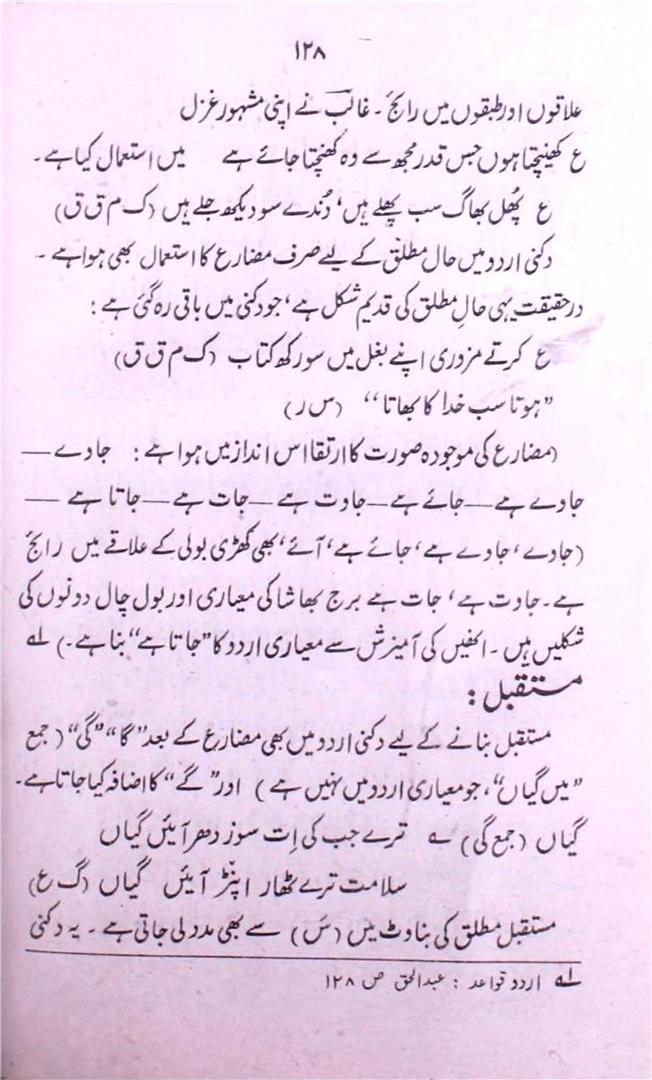 ۱۲۸
علاقوں اور طبقوں میں رائج ۔ غالبؔ نے اپنی مشہور غزل
ع کھینچتا ہوں جس قدر مجھ سے وہ کھنچتا جائے ہے میں استعمال کیا ہے ۔
ع پُھل بھاگ سب پھلے ہیں، دُندے سو دیکھ جلے ہیں (ک م ق ق)
دکنی اردو میں حال مطلق کے لیے صرف مضارع کا استعمال بھی ہوا ہے ۔
درحقیقت یہی حالِ مطلق کی قدیم شکل ہے، جو دکنی میں باقی رہ گئی ہے :
ع کرتے مزوری اپنے بغل میں سو رکھ کتاب (ک م ق ق)
”ہوتا سب خدا کا بھاتا“ (س ر)
(مضارع کی موجودہ صورت کا ارتقا اس انداز میں ہوا ہے : جاوے —
جاوے ہے — جائے ہے — جاوت ہے — جات ہے — جاتا ہے —
(جاوے، جاوے ہے، جائے ہے، آئے، بھی کھڑی بولی کے علاقے میں رائج
ہے ۔ جاوت ہے، جات ہے برج بھاشا کی معیاری اور بول چال دونوں کی
شکلیں ہیں ۔ انھیں کی آمیزش سے معیاری اردو کا ”جاتا ہے“ بنا ہے ۔) لہ
مستقبل :
مستقبل بنانے کے لیے دکنی اردو میں بھی مضارع کے بعد ”گا“ ”گی“ (جمع
”میں گیاں“، جو معیاری اردو میں نہیں ہے) اور ”گے“ کا اضافہ کیا جاتا ہے ۔
گیاں (جمع گی) ؎ ترے جب کی اِت سوز دھر آئیں گیاں
سلامت ترے ٹھار اپنڑ آئیں گیاں (گ ع)
مستقبل مطلق کی بناوٹ میں (سَ) سے بھی مدد لی جاتی ہے ۔ یہ دکنی
لہ اردو قواعد : عبدالحق ص ۱۲۸